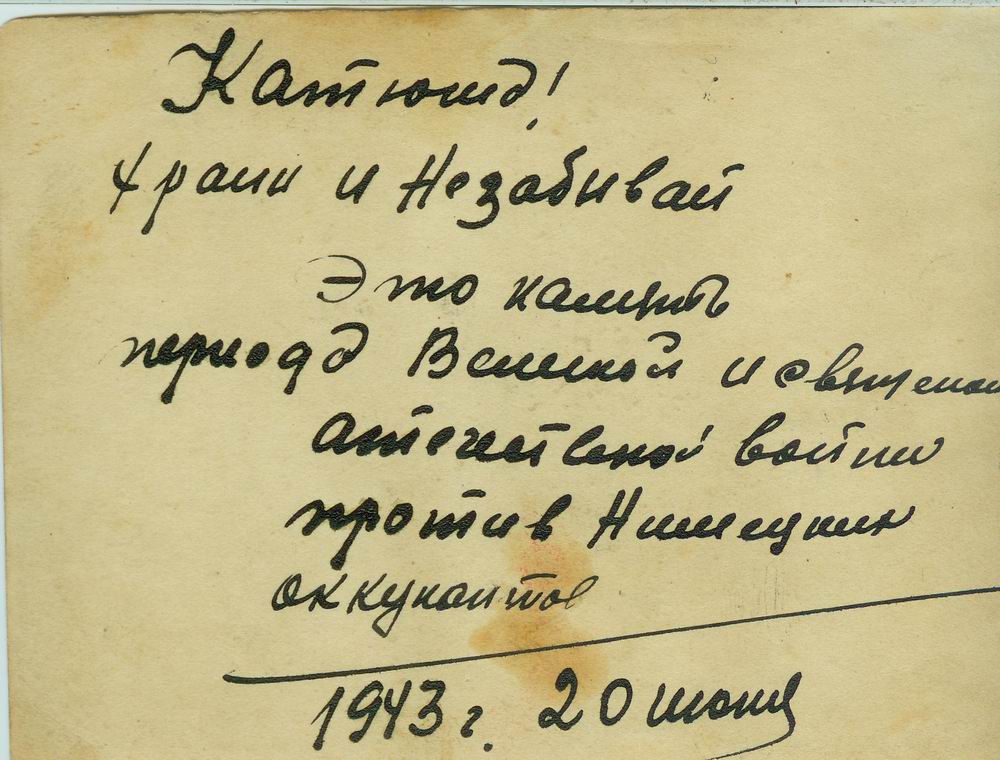 Катюша!
Храни и Незабивай
Это память
периода Великой и священой
атечественой войны
против Нимецких
оккупантов
1943 г. 20 июня